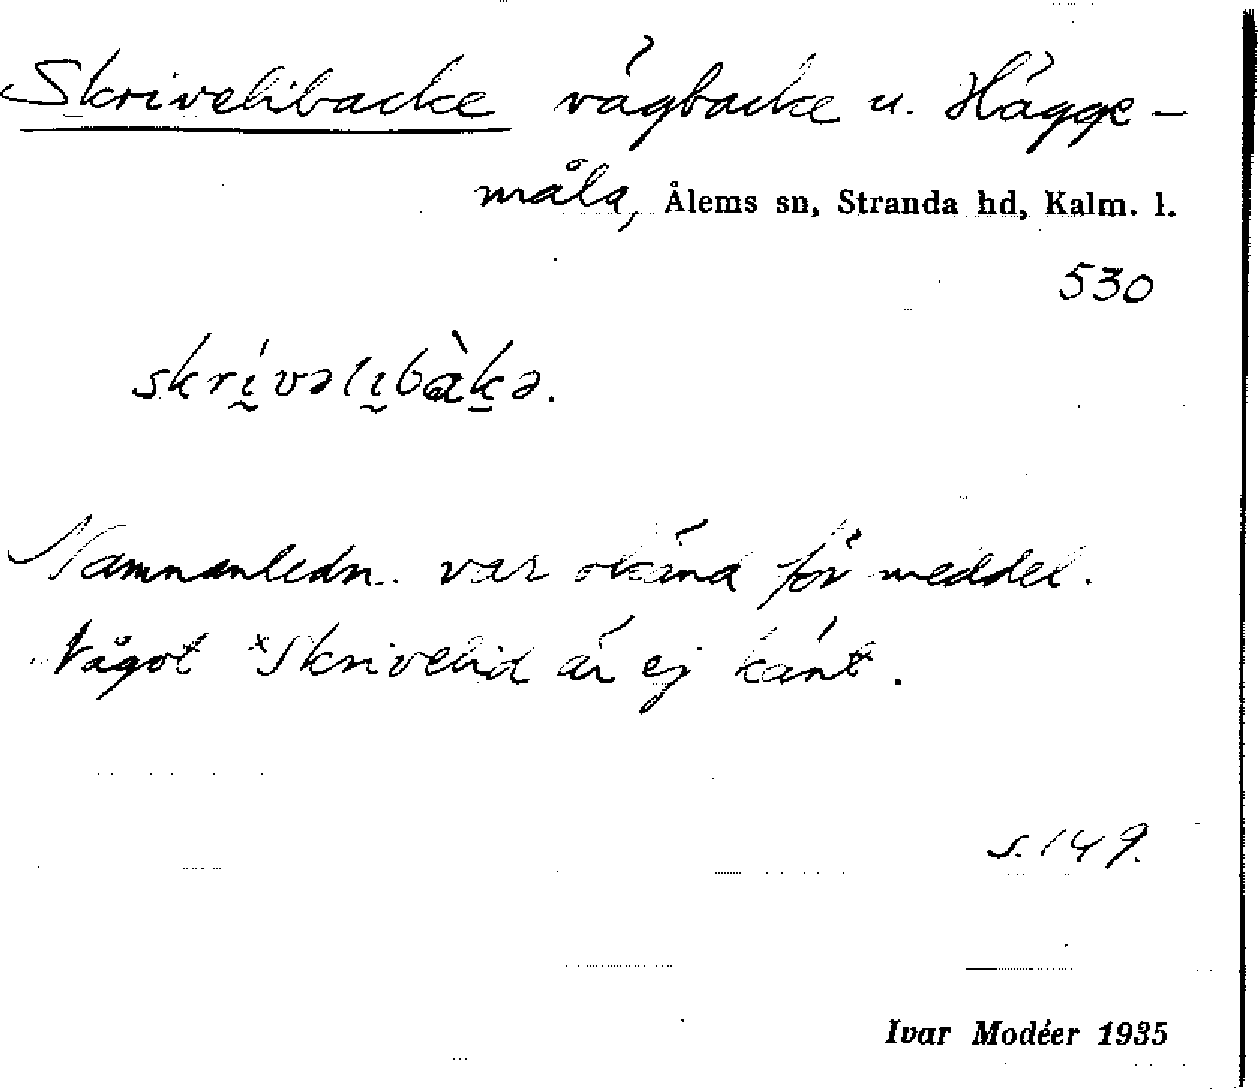 Skrivelibacke vägbacke u. Hägge-
måla, Ålems sn, Stranda hd, Kalm. l.
530
skrḭ́vəlḭbàḵə.
Namnanledn. var okänd för meddel.
Något *Skrivelid är ej känt.
s. 149.
Ivar Modéer 1935